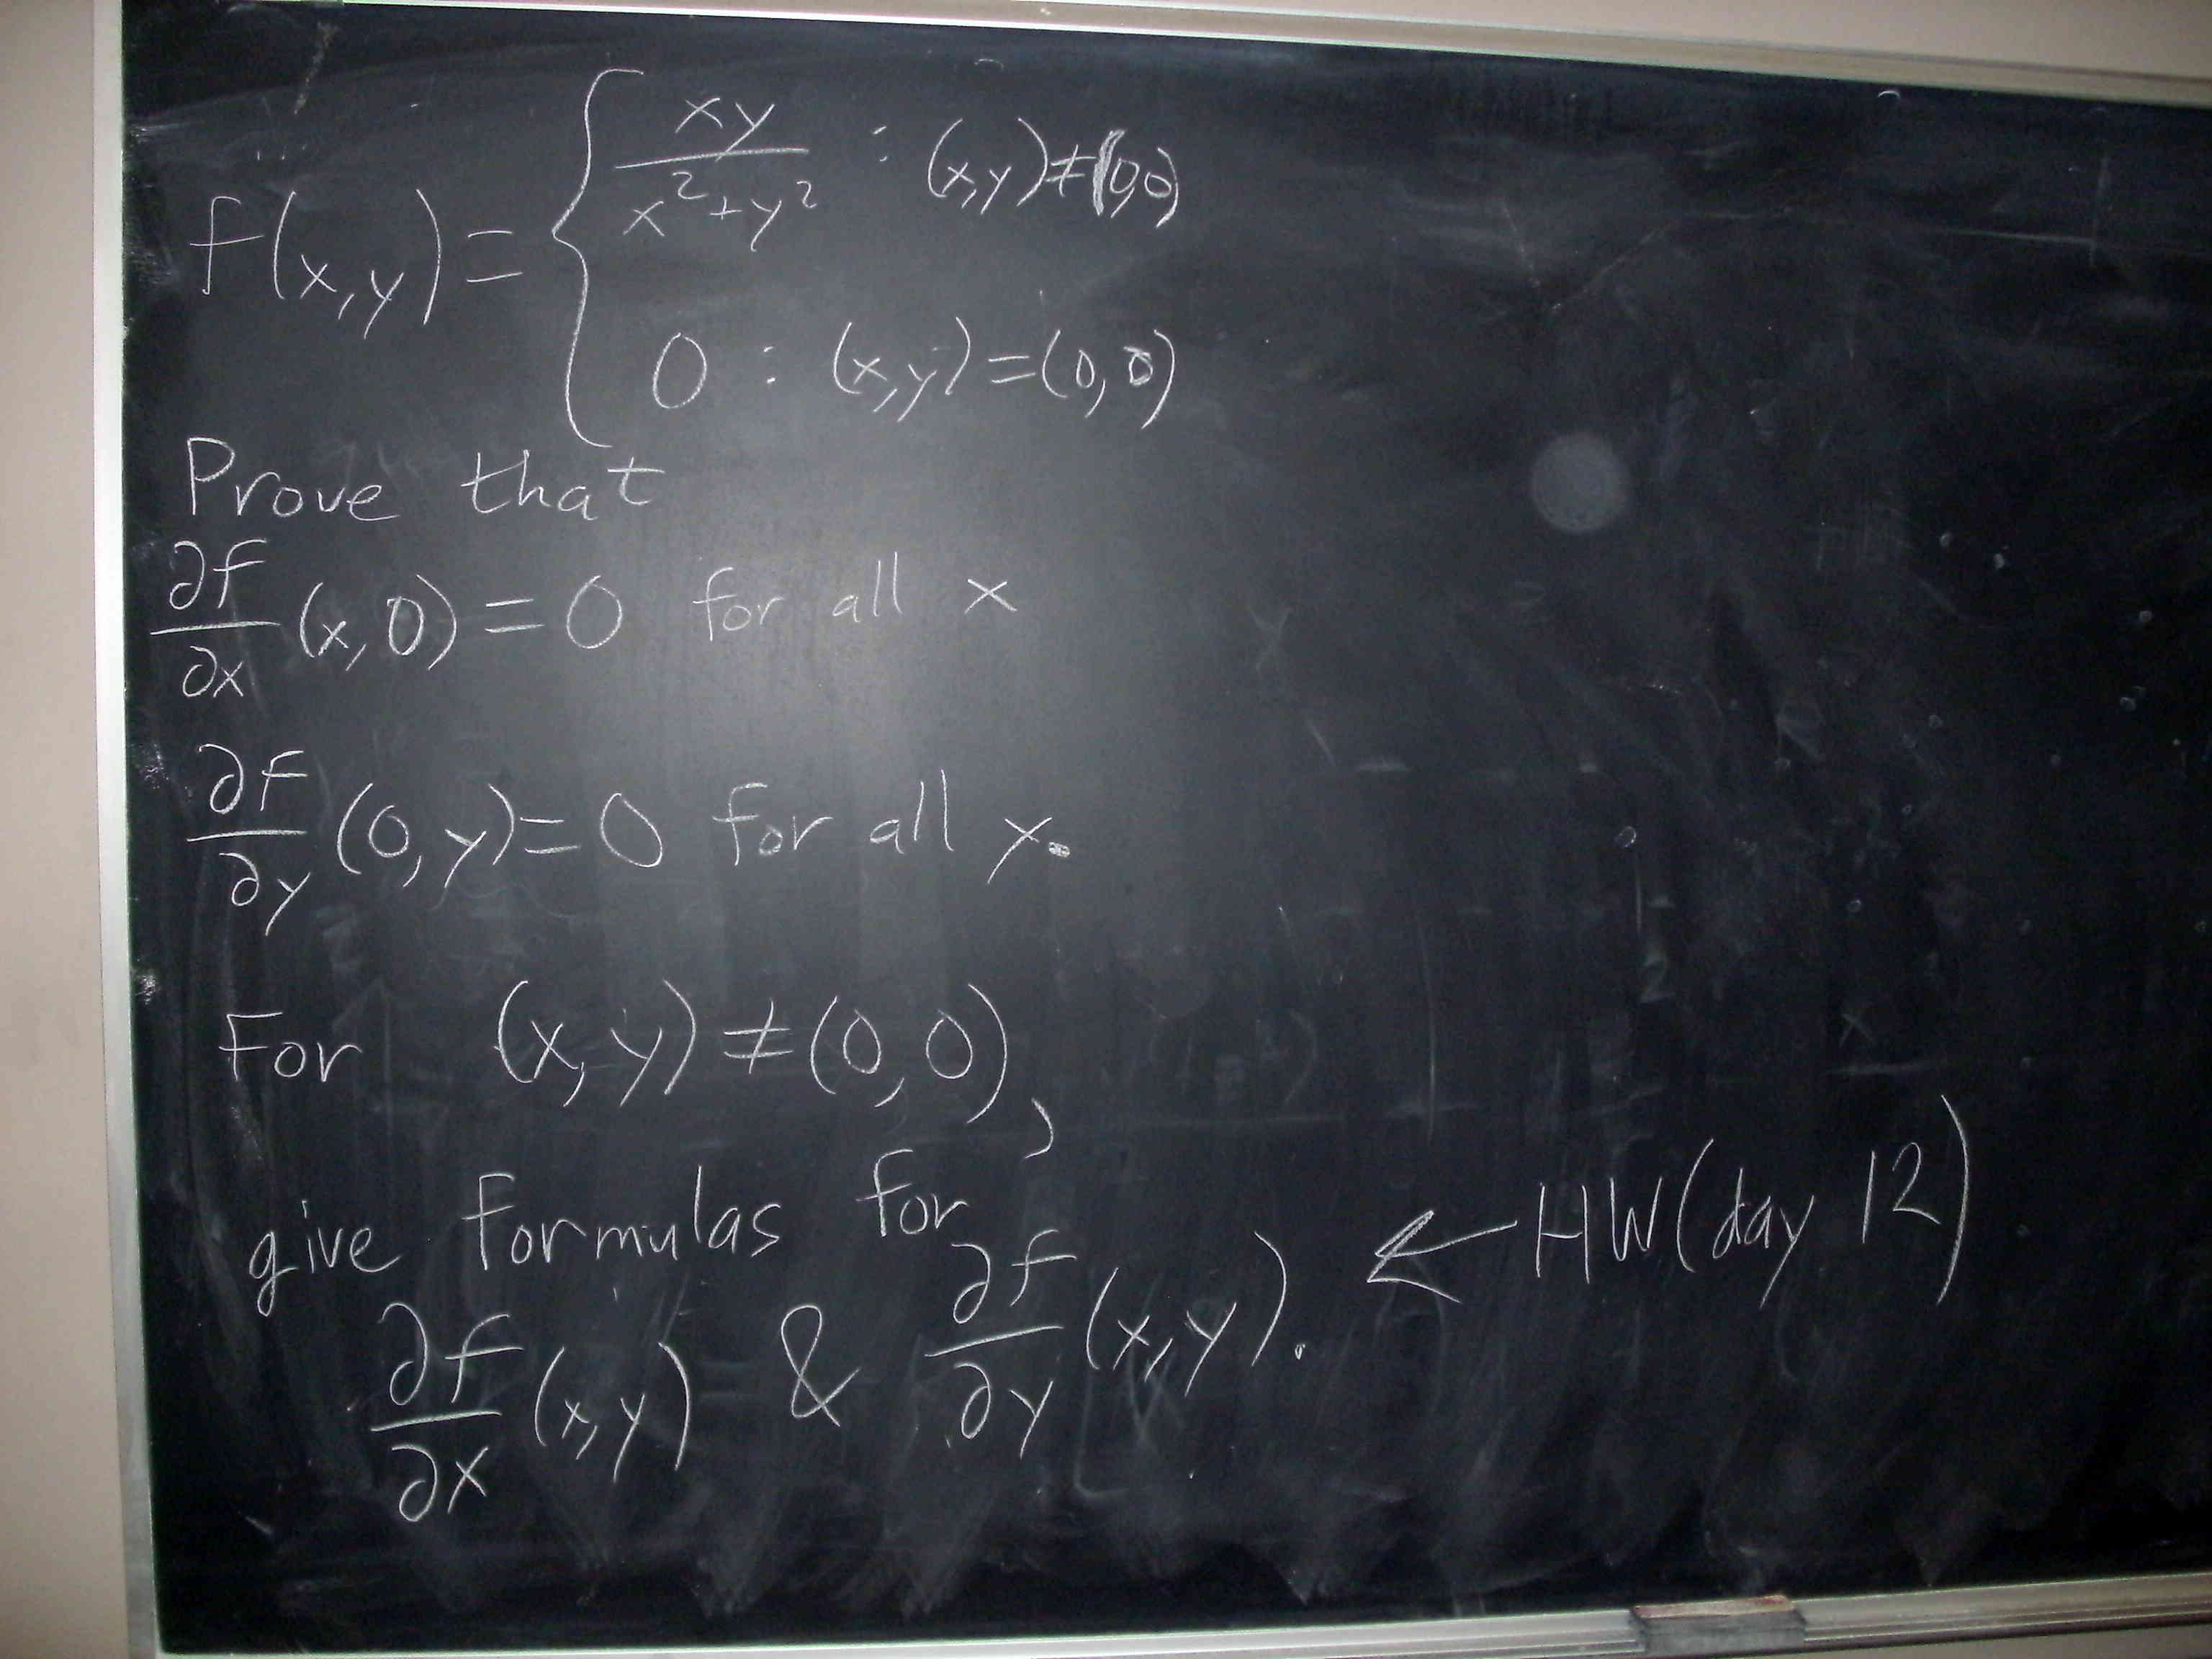 f(x,y) = { xy/(x²+y²) : (x,y)≠(0,0)
0 : (x,y)=(0,0)
Prove that
∂f/∂x (x,0)=0 for all x
∂f/∂y (0,y)=0 for all y.
For (x,y)≠(0,0),
give formulas for
∂f/∂x (x,y) & ∂f/∂y (x,y). ← HW(day 12)